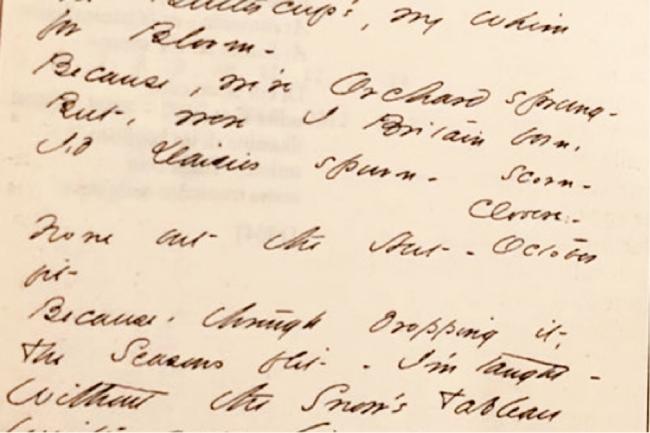 The Buttercup's, my whim
for Bloom -
Because, we're Orchard sprung -
But, were I Britain born,
I'd Daisies spurn - scorn -
Clovers -
None but the Nut - October
fit -
Because, through dropping it,
The Seasons flit - I'm taught -
Without the Snow's Tableau